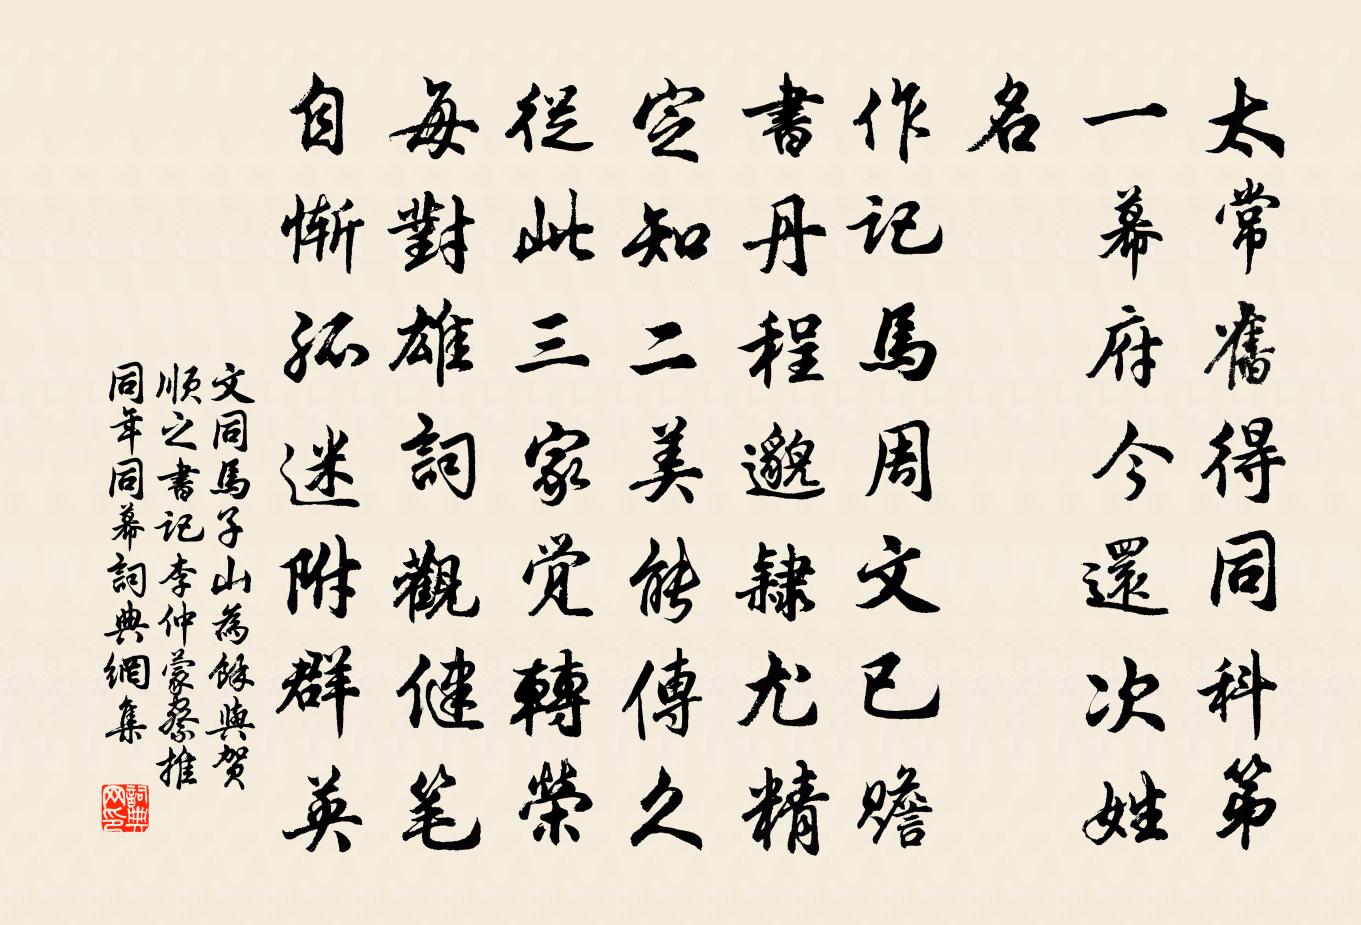 太常舊得同科第
一幕府今還次姓
名
作記馬周文已贍
書丹程邈隸尤精
定知二美能傳久
從此三家覚轉榮
每對雄詞觀健笔
自慚孤迷附群英
文同馬子山為餘與贺
順之書記李仲蒙察推
同年同幕詞典網集
詞典网印